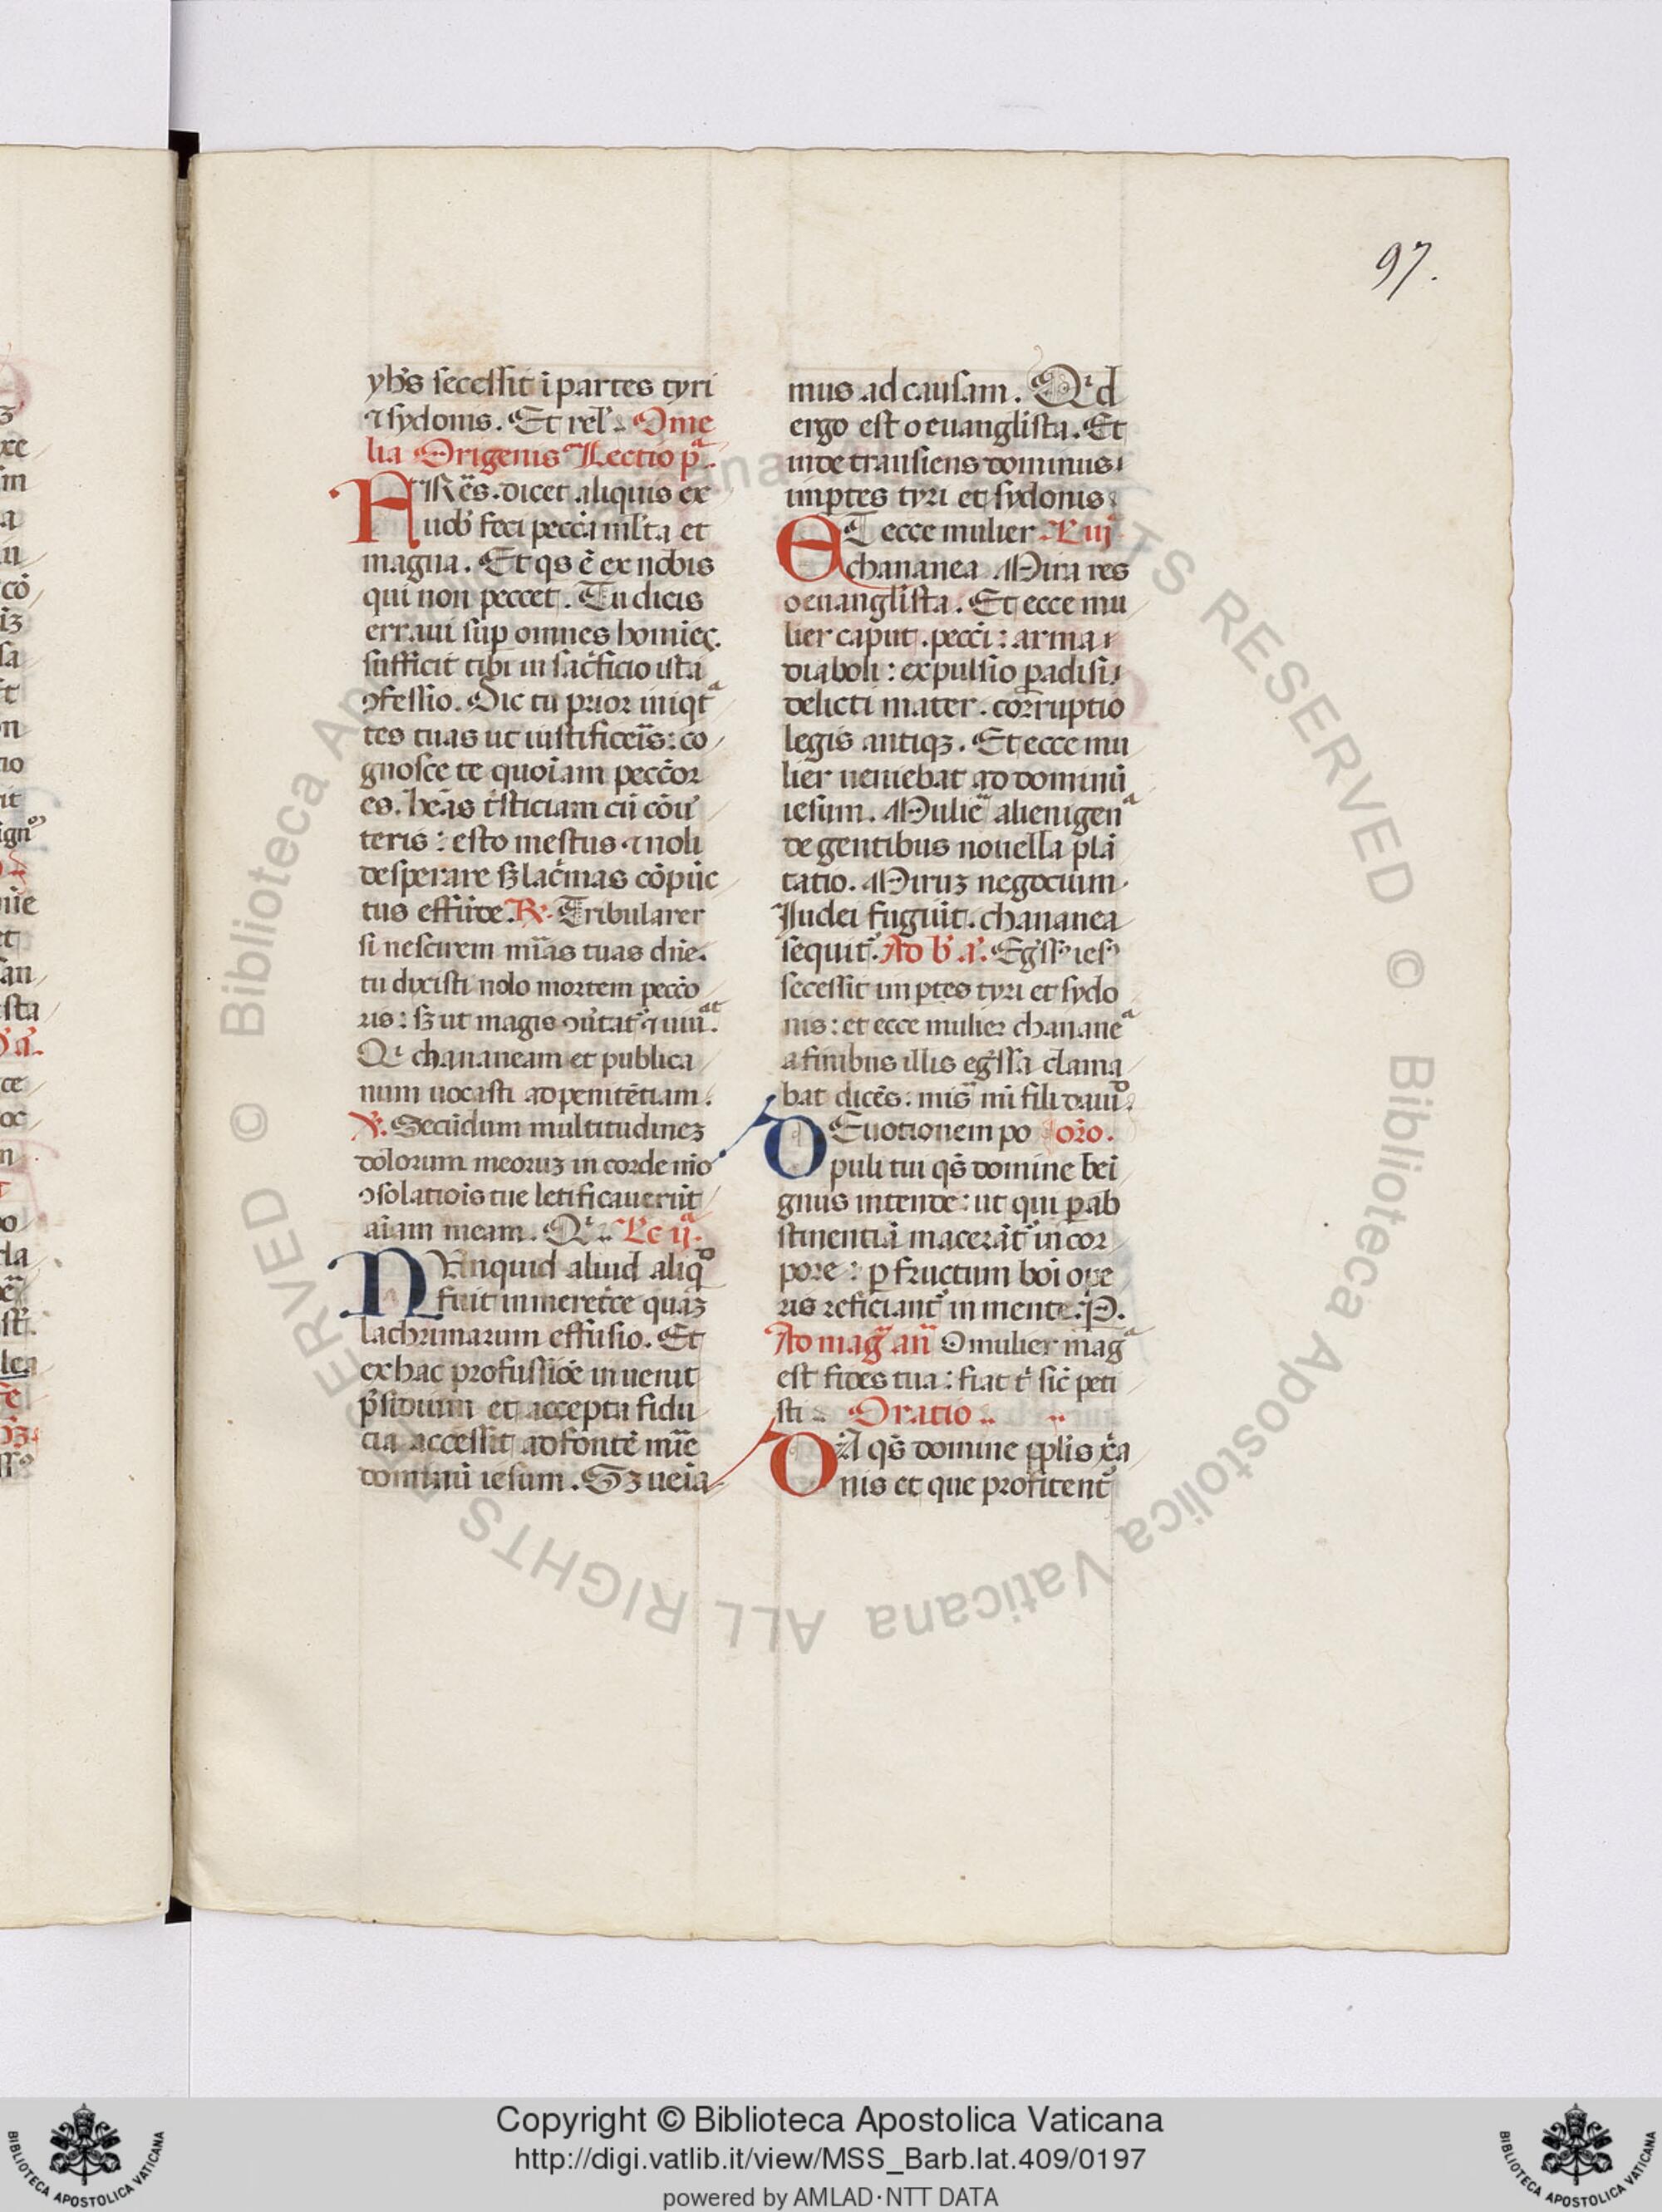 97.
yhs̄ secessit ī partes tyri
⁊ sydonis. Et rel'. Ome
lia Origenis Lectio p̄ª.
FRēs. dicet aliquis ex
uob' feci peccā ml'ta et
magna. Et qs ē ex nobis
qui non peccet. Tu dicis
erraui sup omnes homīes.
sufficit tibi in sac̄ficio ista
ꝯfessio. Dic tu prior iniqtª
tes tuas ut iustificeris: co
gnosce te quoīam peccōr
es. heās t'sticiam cū cōu'
teris: esto mestus ⁊ noli
desperare sꝫ lac̄mas cōpūc
tus effūde. ℟. Tribularer
si nescirem mīas tuas dn̄e.
tu dixisti nolo mortem pecco
ris: sꝫ ut magis ꝯūtat' ⁊ uiuat.
Qⁱ chananeam et publica
num uocasti ad penitētiam.
℣. Secūdum multitudinez
dolorum meorum in corde mō
ꝯsolatiōis tue letificauerūt
aīam meam. Qⁱ. Lc ij.ª
NUnquid aliud aliqº
fuit in meretīce quaꝫ
lachrimarum effusio. Et
ex hac profussiōe inuenit
p̄sidium et accepta fidu
cia accessit ad fontē mīe
dominū iesum. Sꝫ uenia
mus ad causam. Qⁱd
ergo est o euanglista. Et
inde transiens dominus
in ptes tyri et sydonis
ET ecce mulier L iijª
chananea. Mira res
o euanglista. Et ecce mu
lier caput. pecci: arma
diaboli: expulsio padisi
delicti mater. corruptio
legis antiqꝫ. Et ecce mu
lier ueniebat ad dominū
iesum. Mulie alienigenª
de gentibus nouella plā
tatio. Miruꝫ negocium.
Iudei fugiūt. chananea
sequit'. Ad b' a'. Eḡssꝰ iesꝰ
secessit in ptes tyri et sydo
nis: et ecce mulier chananeª
a finibus illis eḡssa clama
bat dicēs: mis̄ mī fili dauid.
DEuotionem po or̄o.
puli tui qs̄ domine bei
gnus intende: ut qui p ab
stinentiā macerāt' in cor
pore: p fructum boī ope
ris reficiant' in mente. P.
Ad maḡ an̄ O mulier magª
est fides tua: fiat t' sic̄ peti
sti. Oratio
DA qs̄ domine pplis xp̄ia
nis et que profitent'
Copyright © Biblioteca Apostolica Vaticana
http://digi.vatlib.it/view/MSS_Barb.lat.409/0197
powered by AMLAD·NTT DATA